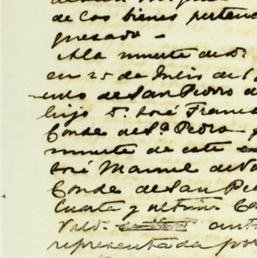 de los bienes pertene
quesado —
A la muerte de Dⁿ
en 25 de Julio de 1
de San Pedro d
hijo Dⁿ José Franc
Conde de Sⁿ Pedro
muerte de este
José Manuel de
Conde de San Pe
Cuarto y ultimo Co
Vald
representada por